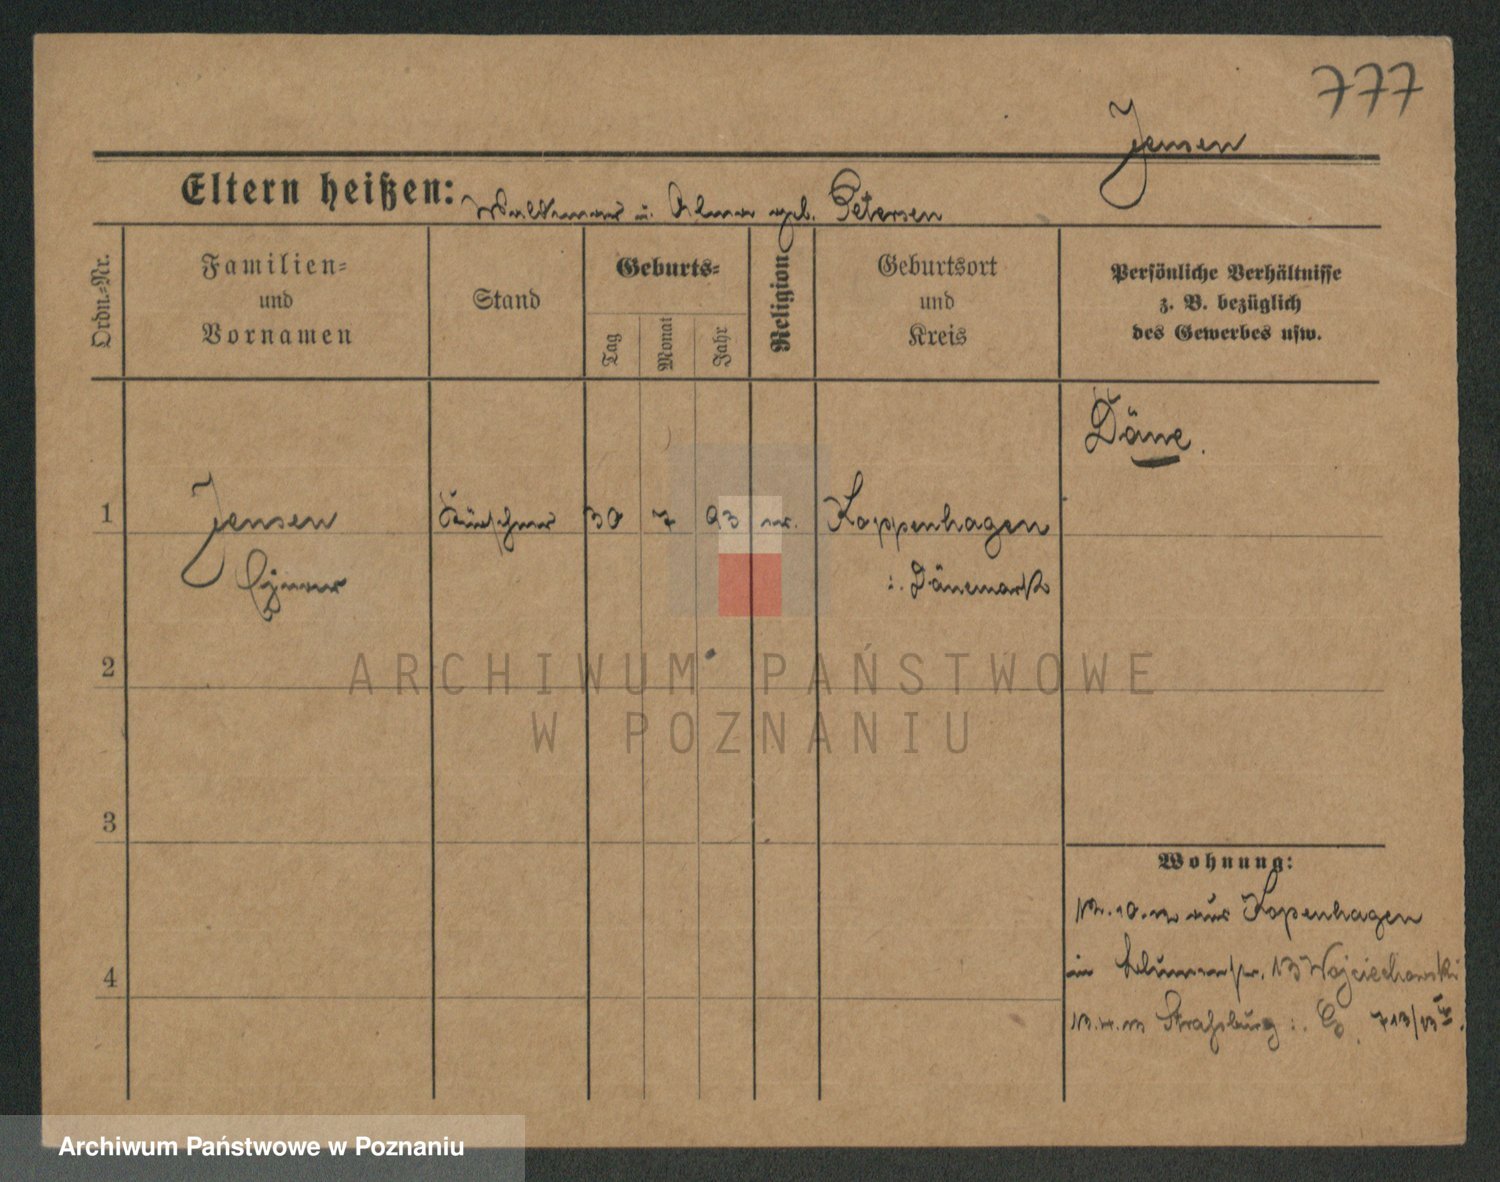 777
Jensen
Eltern heißen: Waldemar u. Alma geb. Petersen
Ordn.-Nr.
Familien-
und
Vornamen
Stand
Geburts-
Tag
Monat
Jahr
Religion
Geburtsort
und
Kreis
Persönliche Verhältnisse
z. B. bezüglich
des Gewerbes usw.
Däne.
1 Jensen Kürschner 30 7 93 Koppenhagen
Dänemark
2
ARCHIWUM PAŃSTWOWE
W POZNANIU
3
4
Wohnung:
aus Kopenhagen
in 13 Wojciechowski
Straßburg i. E. 713/13
Archiwum Państwowe w Poznaniu